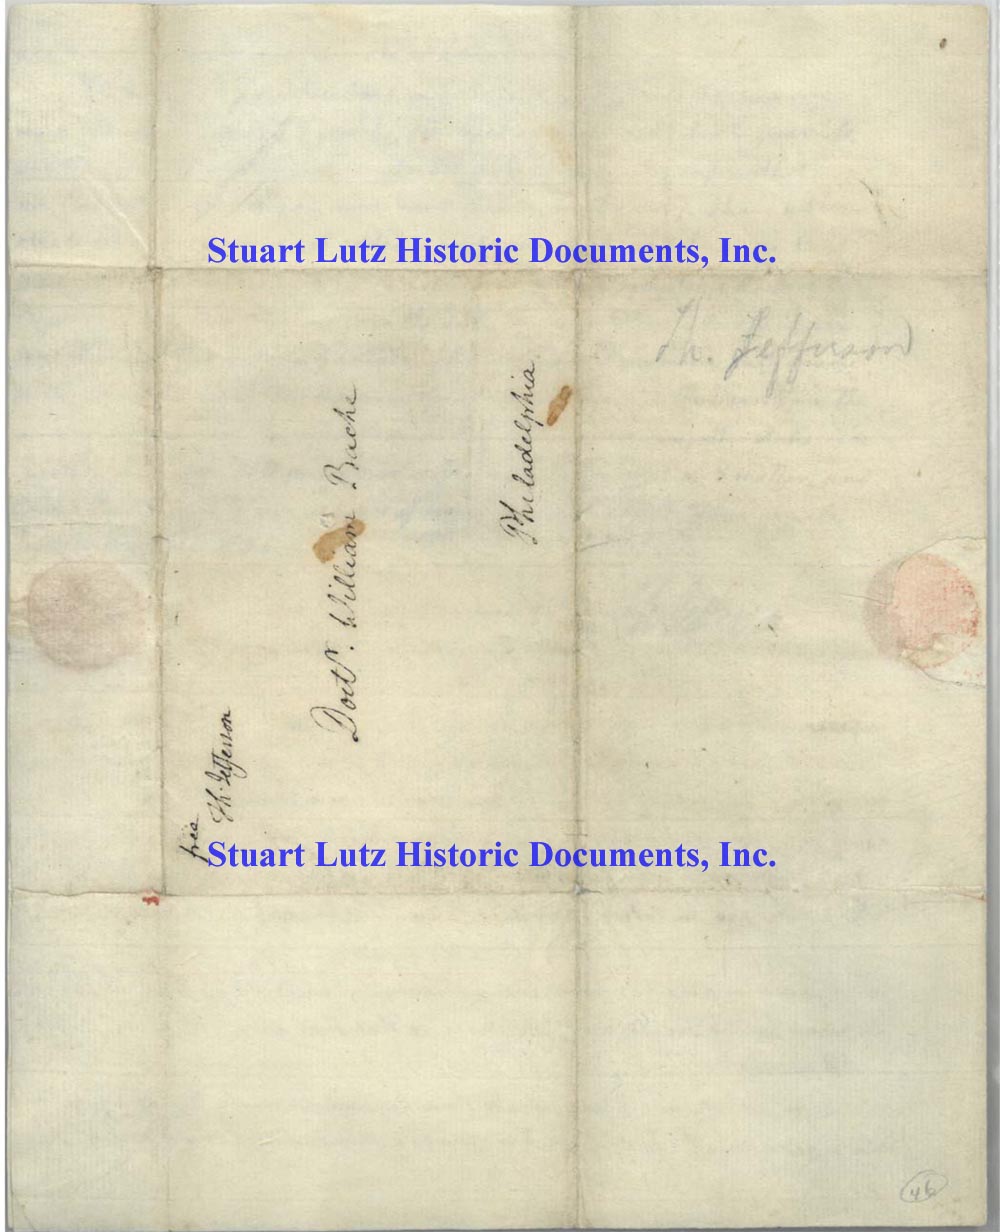 Stuart Lutz Historic Documents, Inc.
Th. Jefferson
free
Th. Jefferson
Doctr. William Bache
Philadelphia
Stuart Lutz Historic Documents, Inc.
46